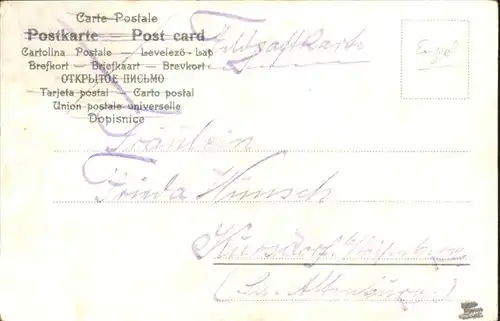 Carte Postale
Postkarte — Post card
Cartolina Postale — Levelező-Lap
Brefkort — Briefkaart — Brevkort
ОТКРЫТОЕ ПИСЬМО
Tarjeta postal — Carto postal
Union postale universelle
Dopisnice
Feldpostkarte
Fräulein
Frida Wünsch
Kursdorf
Altenburg.)